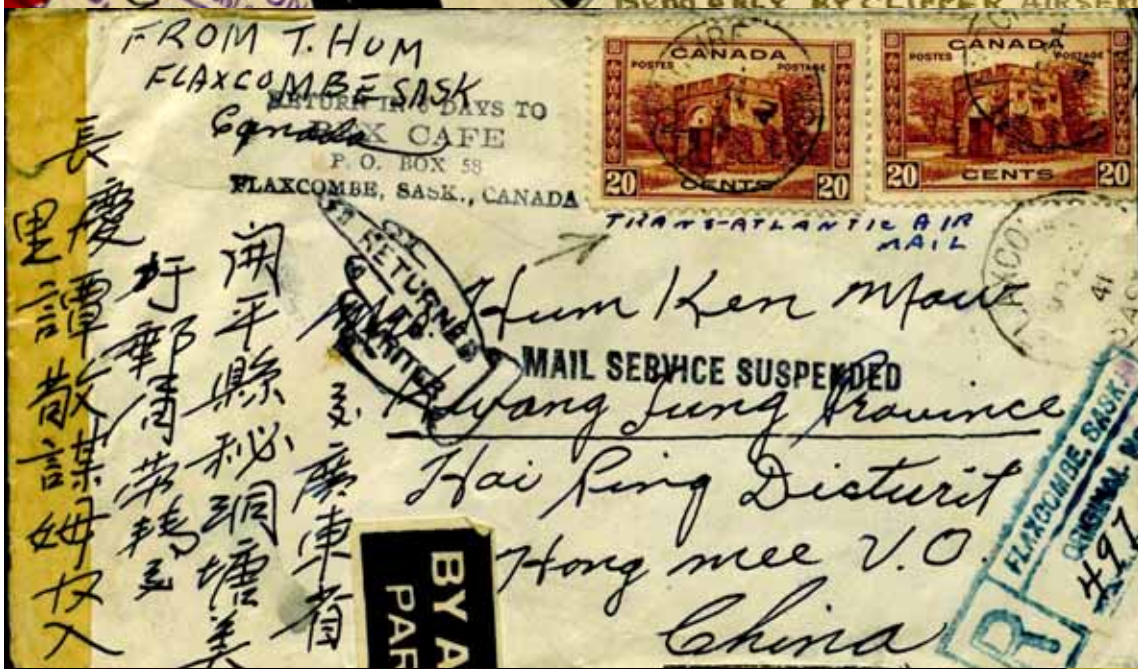 ONLY BY CLIPPER AIR
FROM T. HUM
FLAXCOMBE SASK
Canada
RETURN IN DAYS TO
CAFE
P. O. BOX 58
FLAXCOMBE, SASK., CANADA
CANADA
POSTES POSTAGE
20 CENTS 20
CANADA
POSTES POSTAGE
20 CENTS 20
TRANS-ATLANTIC AIR
MAIL
41
RETURNED
TO
WRITER
MAIL SERVICE SUSPENDED
Hum Ken
Kwang Tung Province
Hai Ping Disturit
Hong mee V.O.
China
廣東省
開平縣 塘美
圩 轉交
長慶里譚 母收入
BY A
PAR
FLAXCOMBE, SASK.
ORIGINAL
R
497